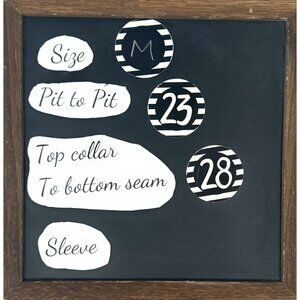 Size M
Pit to Pit 23
Top collar
To bottom seam 28
Sleeve